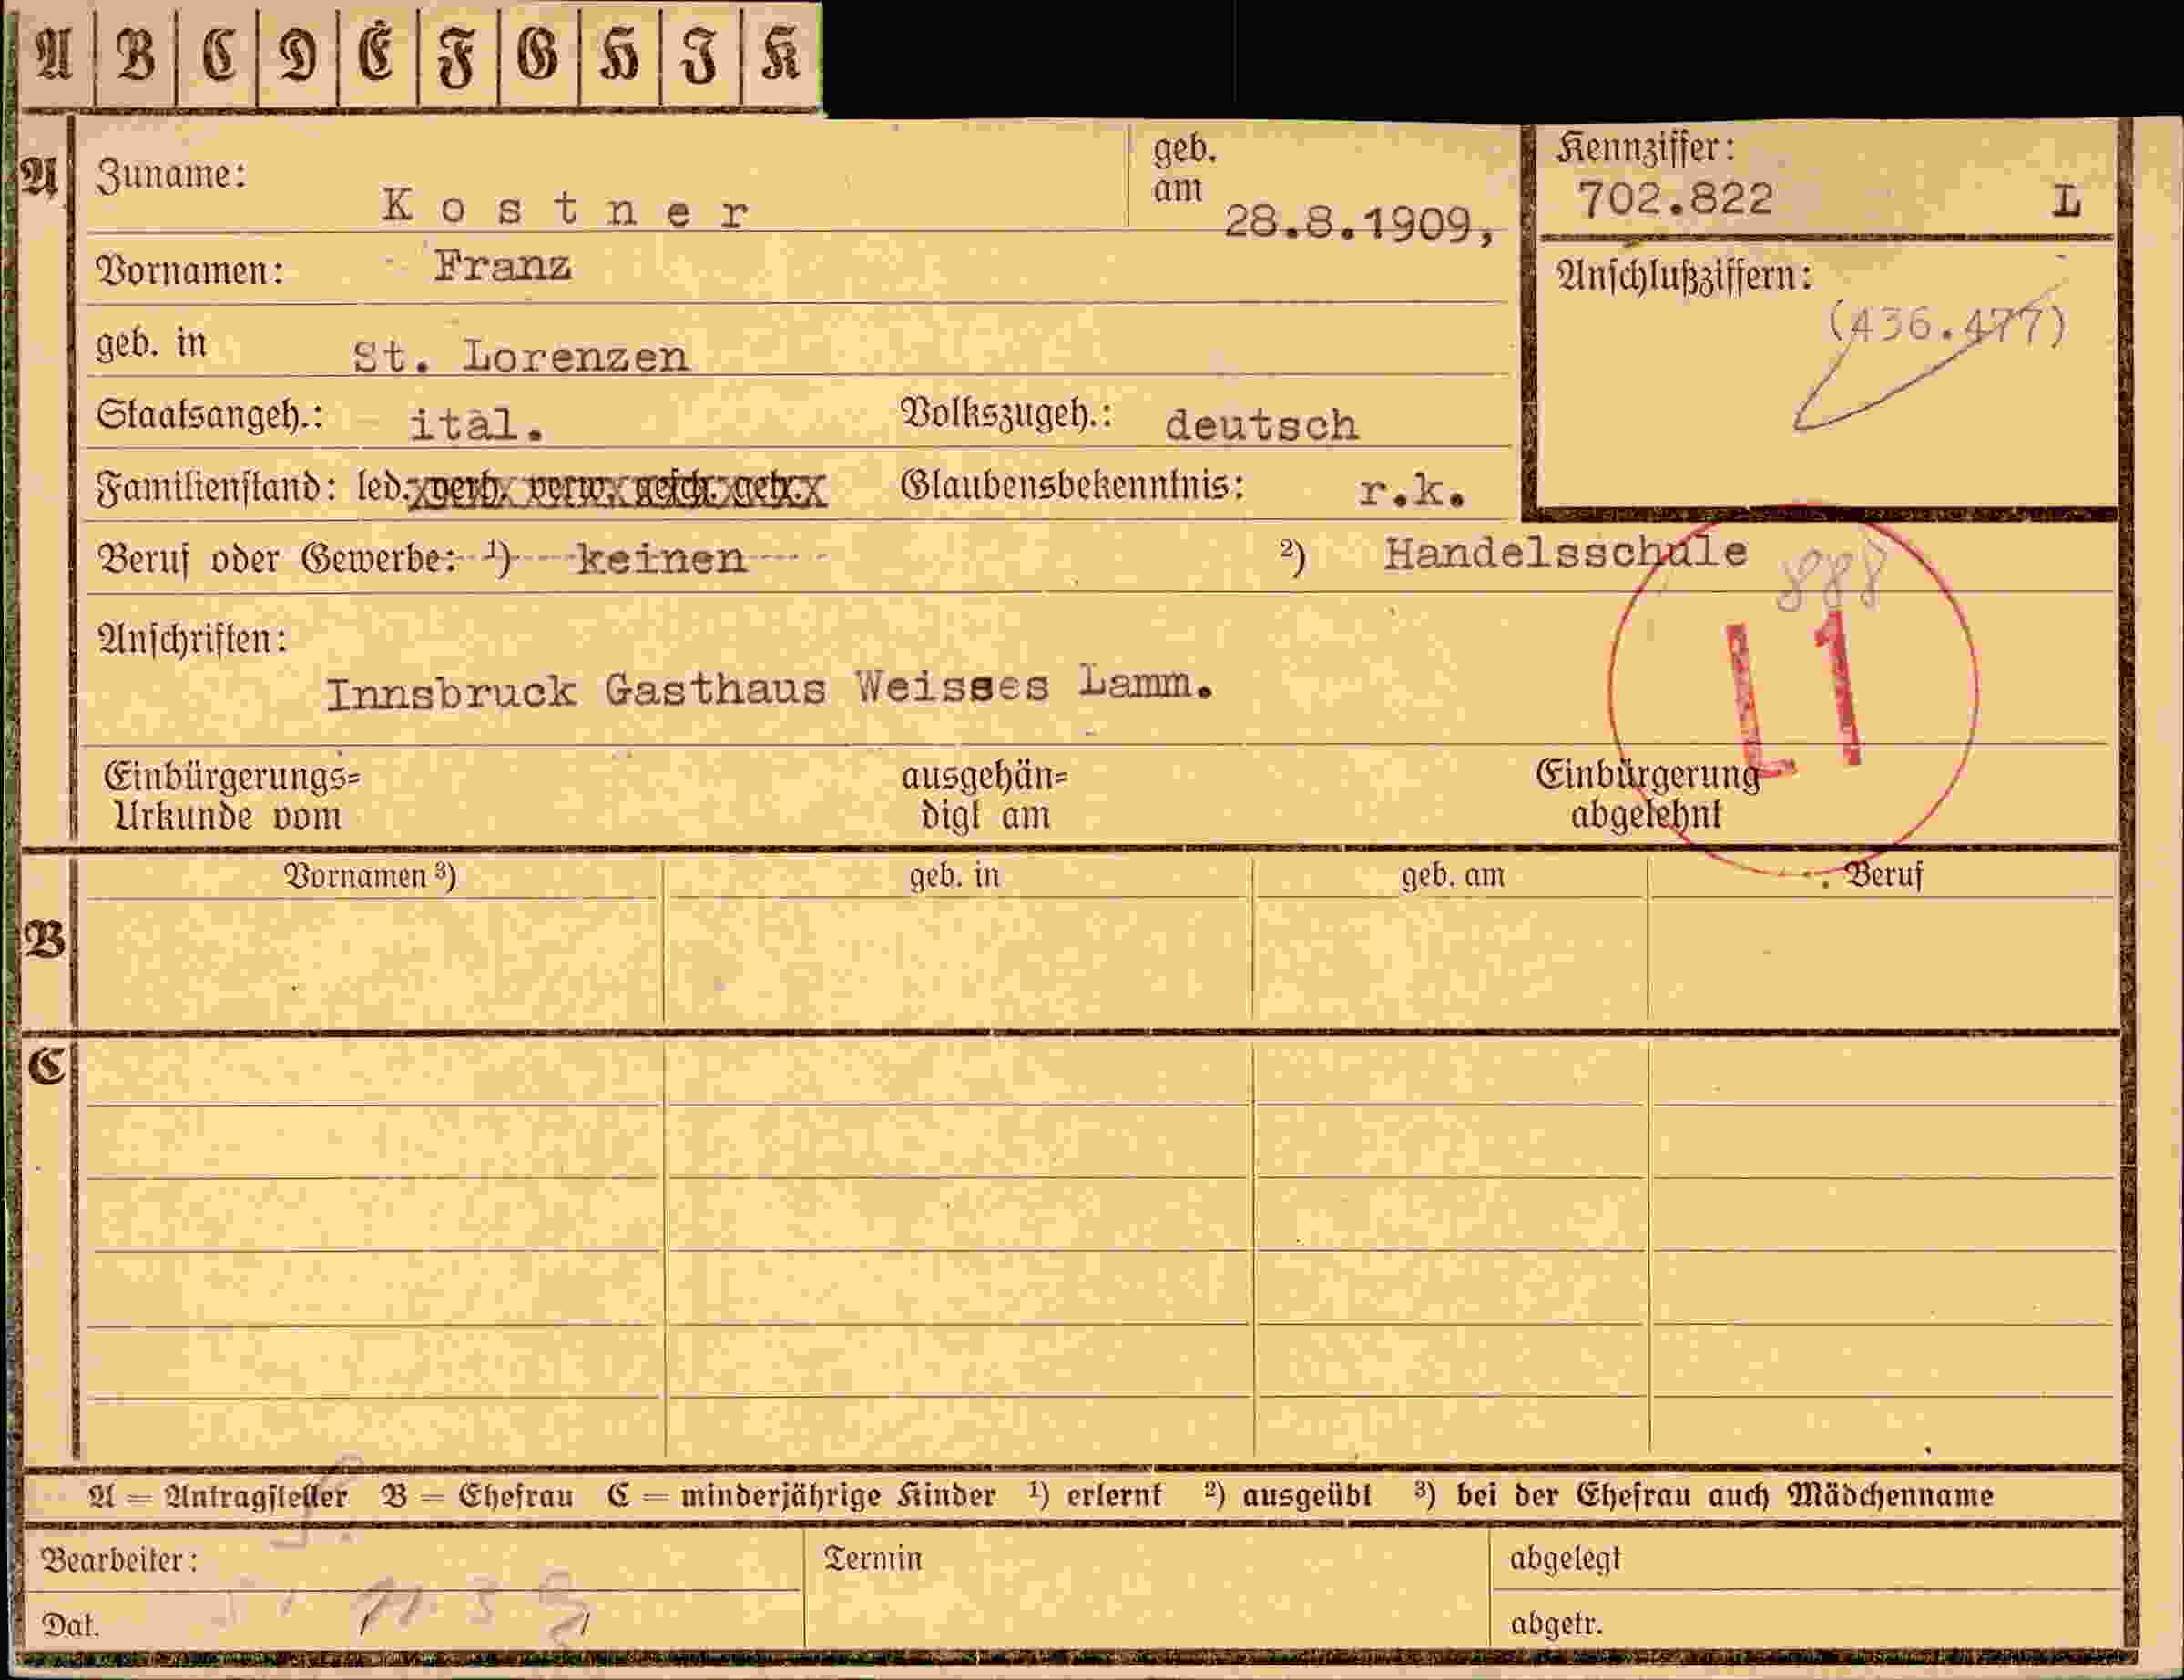 A B C D E F G H I K
A Zuname: Kostner geb. am 28.8.1909,
Kennziffer: 702.822 L
Vornamen: Franz
Anschlußziffern: (436.477)
geb. in St. Lorenzen
Staatsangeh.: ital. Volkszugeh.: deutsch
Familienstand: led. verh. verw. gesch. getr. Glaubensbekenntnis: r.k.
Beruf oder Gewerbe: ¹) keinen ²) Handelsschule
888
Anschriften:
L1
Innsbruck Gasthaus Weisses Lamm.
Einbürgerungs= ausgehän= Einbürgerung
Urkunde vom digt am abgelehnt
Vornamen ³) geb. in geb. am Beruf
B
C
A = Antragsteller B = Ehefrau C = minderjährige Kinder ¹) erlernt ²) ausgeübt ³) bei der Ehefrau auch Mädchenname
Bearbeiter: Termin abgelegt
Dat. abgetr.